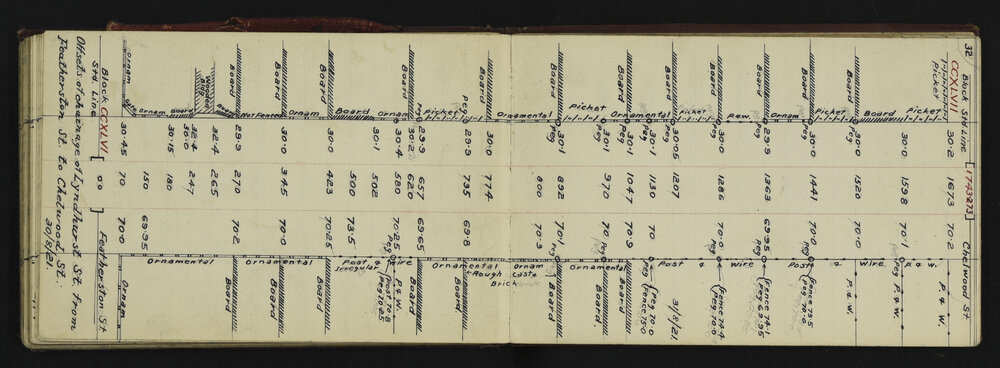 32
Block Std Line [1743273] Chelwood St
CCXLVI
Picket
30·2 1673 70·2 P. & W.
Picket
30·0 1598 70·1 Peg P. & W.
P. & W.
Board 30·0 1520 70·0 P. & W.
Board Peg
Picket
Board 30·0 1441 70·0 Peg (Fence 73·5
Peg 70·0
Post & Wire
Ornam
Board 29·9 1363 69·95 Peg (Fence 74·1
Peg 69·95
P & W.
Board Peg 30·1 1286 70·0 Peg (Fence 74·4
Peg 70·0
Picket
Post & Wire
Board Peg 30·05 1207
31/8/21.
30·1 1130 70 (Peg 70·0
Fence 75·0
Ornamental
Board Peg 30·1 1047 70·9 Board
Peg 30·1 970 70·1
Picket Ornamental
Board Peg 30·1 892 70·1 Peg Board
800 70·3 Ornam Cast & Brick
Ornamental
Board 30·0 774
Peg 29·9 735 69·8
Picket Ornamental & Rough
Board Peg 29·9 657 69·65 Board
30·22 620
Ornam 30·4 580 70·25 Peg P. & W.
(Post 70·8
Peg 70·25
30·1 502 73·5
Board 500 Post & Wire
Irregular
Board 30·0 423 70·25 Board
Ornam
Board 30·0 345 70·0 Board
Not Fenced Ornamental
Board 29·9 270 70·2 Board
Board 32·4 265
Wooden Bldg
32·4 247
30·0
Board 30·15 180
Ornam 150 69·95 Ornamental
Ornam 30·45 70 70·0 Ornam
Block CCXLVI [0·0] Featherston St
Std. Line
Offsets & chainage of Lyndhurst St. from
Featherston St. to Chelwood St.
30/8/21.